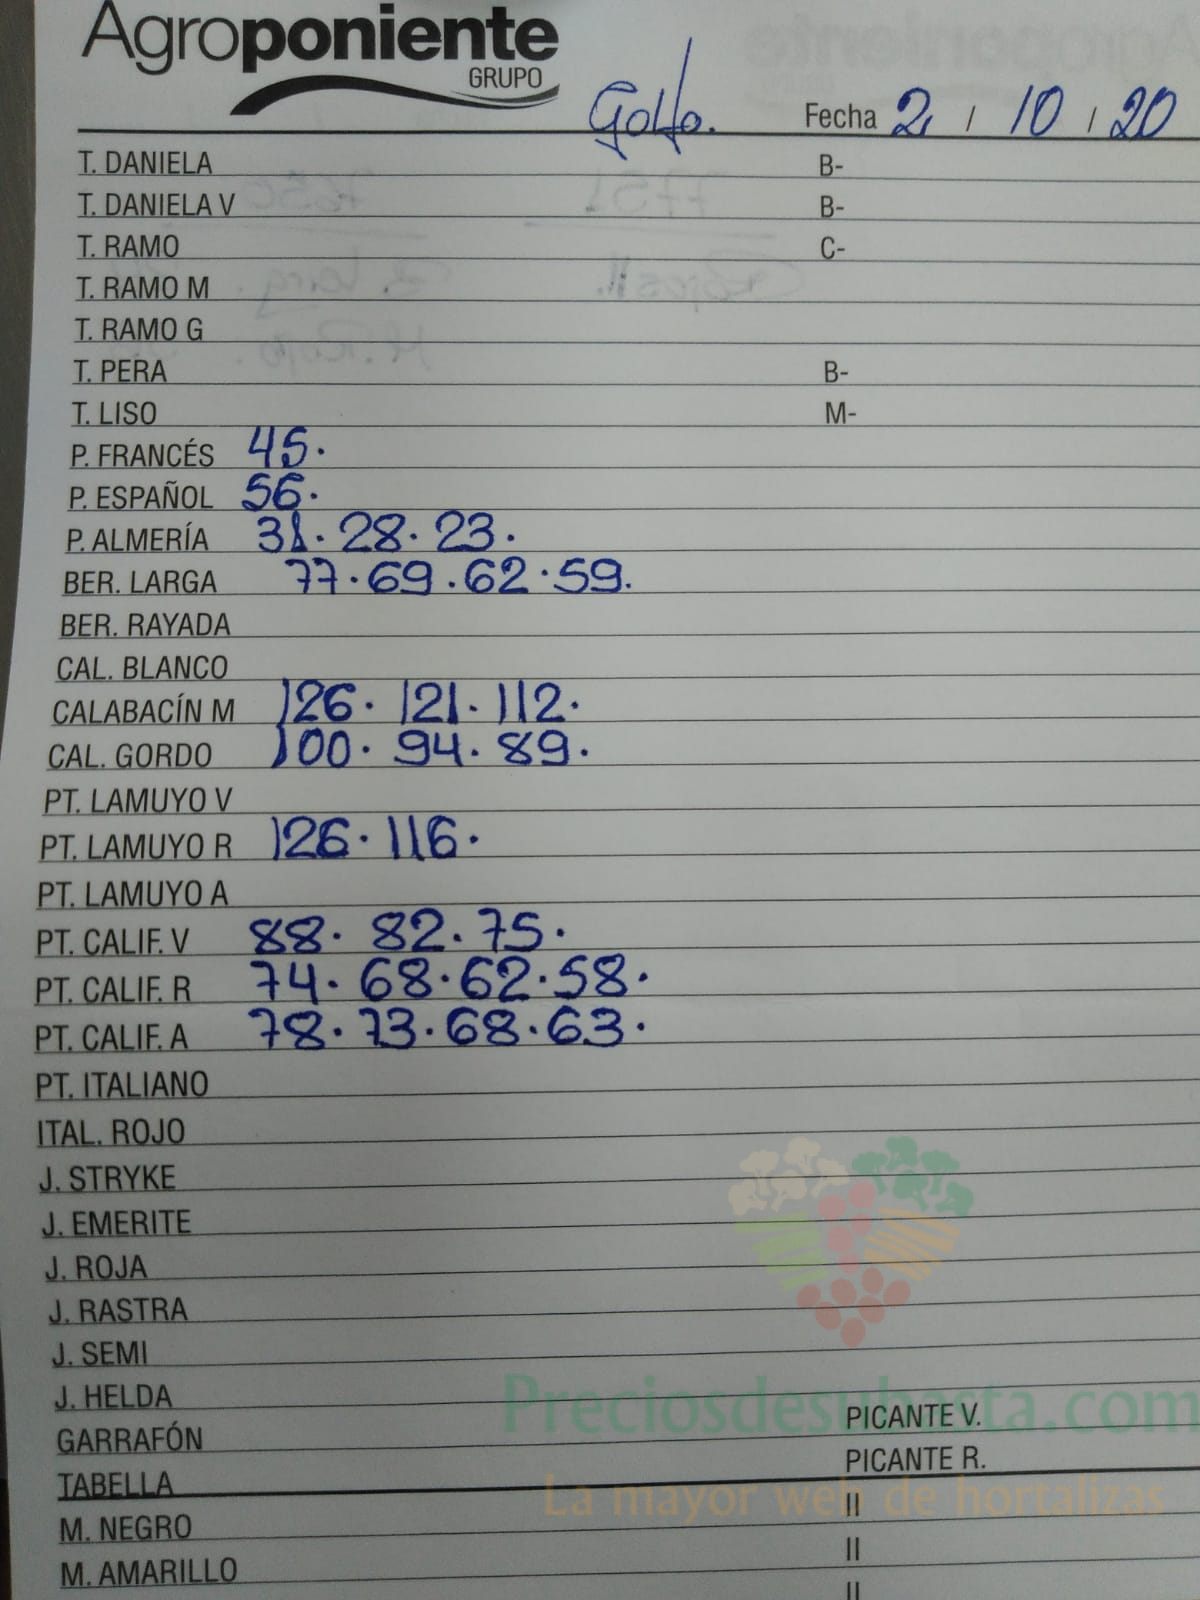 Agroponiente
GRUPO
Golfo. Fecha 2 / 10 / 20
T. DANIELA B-
T. DANIELA V B-
T. RAMO C-
T. RAMO M
T. RAMO G
T. PERA B-
T. LISO M-
P. FRANCÉS 45.
P. ESPAÑOL 56.
P. ALMERÍA 31. 28. 23.
BER. LARGA 77. 69. 62. 59.
BER. RAYADA
CAL. BLANCO
CALABACÍN M 126. 121. 112.
CAL. GORDO 100. 94. 89.
PT. LAMUYO V
PT. LAMUYO R 126. 116.
PT. LAMUYO A
PT. CALIF. V 88. 82. 75.
PT. CALIF. R 74. 68. 62. 58.
PT. CALIF. A 78. 73. 68. 63.
PT. ITALIANO
ITAL. ROJO
J. STRYKE
J. EMERITE
J. ROJA
J. RASTRA
J. SEMI
J. HELDA
Preciosdesubasta.com
GARRAFÓN PICANTE V.
TABELLA PICANTE R.
La mayor web de hortalizas
M. NEGRO II
M. AMARILLO II
II